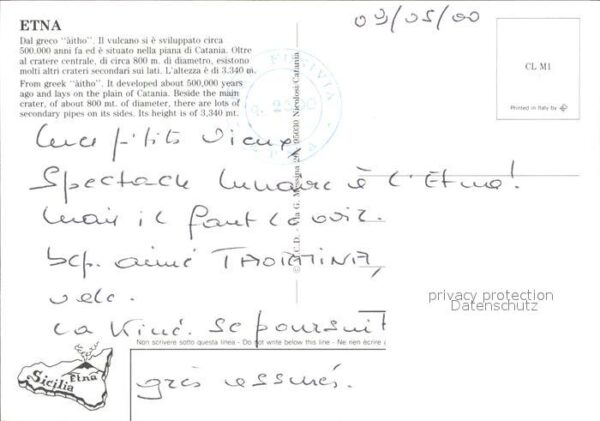 ETNA
Dal greco "àitho". Il vulcano si è sviluppato circa
500.000 anni fa ed è situato nella piana di Catania. Oltre
al cratere centrale, di circa 800 m. di diametro, esistono
molti altri crateri secondari sui lati. L'altezza è di 3.340 m.
From greek "àitho". It developed about 500,000 years
ago and lays on the plain of Catania. Beside the main
crater, of about 800 mt. of diameter, there are lots of
secondary pipes on its sides. Its height is of 3,340 mt.
03/05/00
CL M1
Printed in Italy by
95030 Nicolosi/Catania
p'tits vieux,
Spectacle lunaire à l'Etna!
Mais il faut le voir.
bcp. aimé TAORMINA,
velo.
La Kiné. se poursuit
Non scrivere sotto questa linea - Do not write below this line - Ne rien écrire
Sicilia
Etna
privacy protection
Datenschutz